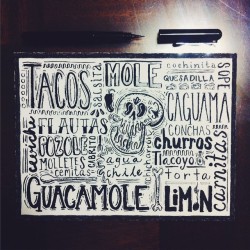 TACOS
salsita
MOLE
cochinita
QUESADILLA
SOPE
FLAUTAS
CAGUAMA
POZOLE
CONCHAS
ceviche
MOLLETES
CABRITO
churros
cemitas
agua
chile
Tlacoyo
torta
carnitas
GUACAMOLE
LIMÓN